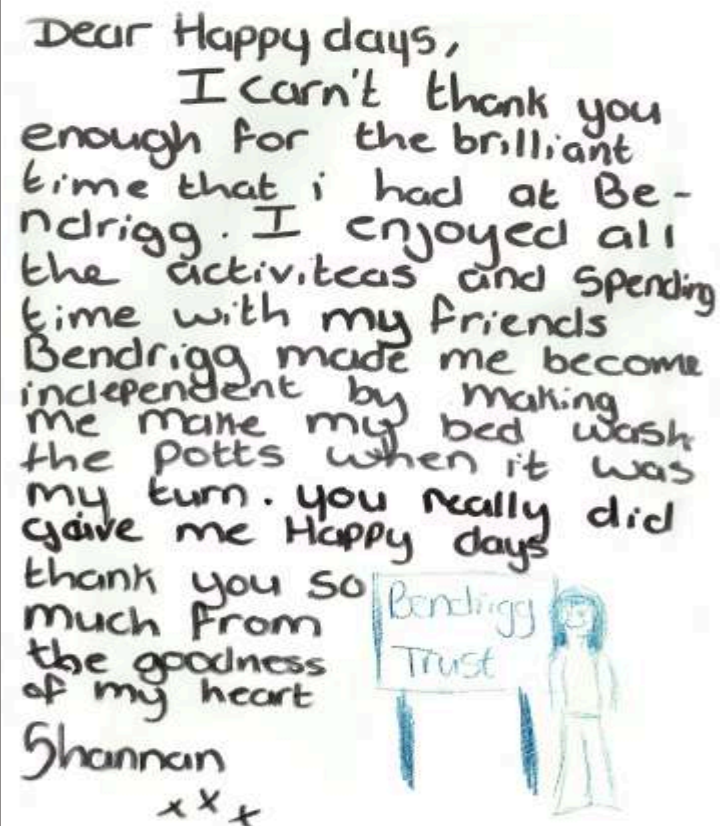 Dear Happy days,
I carn't thank you
enough for the brilliant
time that i had at Be-
ndrigg. I enjoyed all
the activiteas and spending
time with my friends
Bendrigg made me become
independent by making
me make my bed wash
the potts when it was
my turn. you really did
gaive me Happy days
thank you so
much from
the goodness
of my heart
Shannan
x x x
Bendrigg
Trust